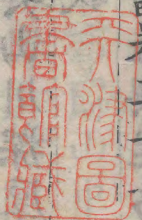 天津圖
書館藏